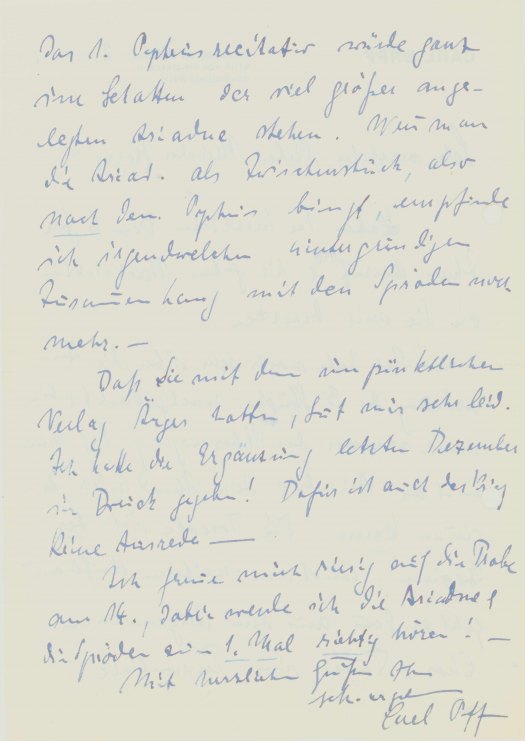 Das 1. Orpheus recitativ würde ganz
im Schatten der viel größer ange-
legten Ariadne stehen. Wenn man
die Ariad. als Zwischenstück, also
nach dem Orpheus bringt, empfinde
ich irgendwelchen hintergründigen
Zusammenhang mit den Spröden noch
mehr. —
Daß Sie mit dem unpünktlichen
Verlag Ärger hatten, tut mir sehr leid.
Ich hatte die Ergänzung letzten Dezember
in Druck gegeben! Dafür ist auch der Krieg
keine Ausrede —
Ich freue mich riesig auf die Probe
am 14., dabei werde ich die Ariadne &
die Spröden zum 1. Mal richtig hören! —
Mit herzlichen Grüßen Ihr
sehr ergeb.
Carl Orff